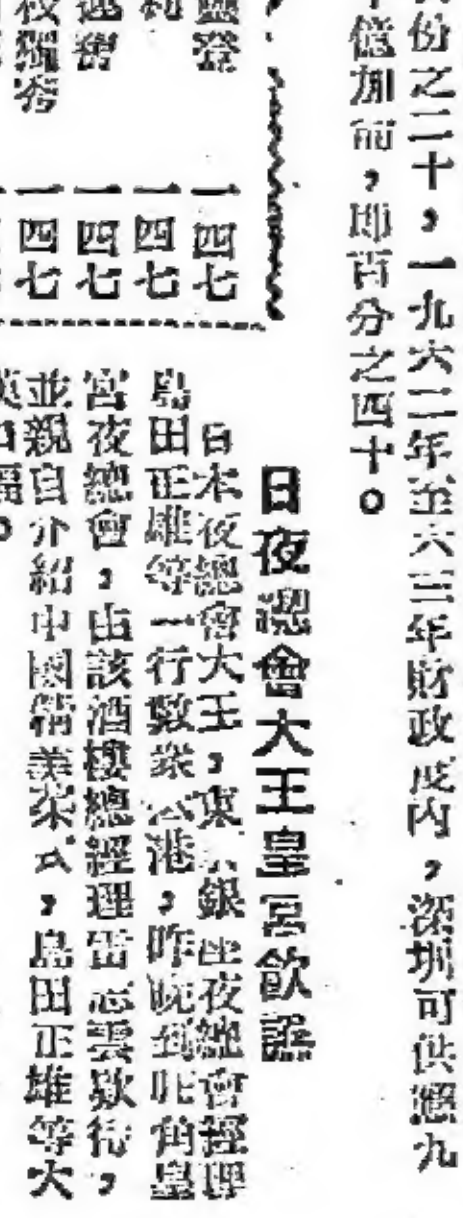 份之二十，一九六二年至六三年財政度內，深圳可供應九
億加侖，即百分之四十。
一四七
一四七
一四七
一四七
日夜總會大王皇宮飲讌
日本夜總會大王，東京銀座夜總會經理
島田正雄等一行數衆公港，昨晚到旺角皇
宮夜總會，由該酒樓總經理雷志雲欵待，
並親自介紹中國精美菜式，島田正雄等大
口福。